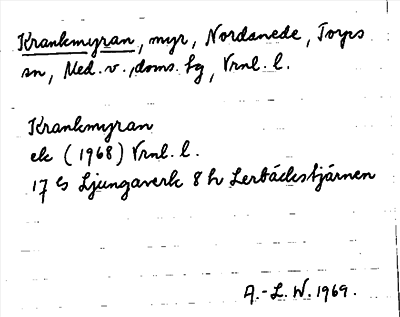 Krankmyran, myr, Nordanede, Torps
sn, Med. v., doms. sg, Vrnl. l.
Krankmyran
ek (1968) Vrnl. l.
17 G Ljungaverk 8 h Lerbäckstjärnen
A.-L. W. 1969.